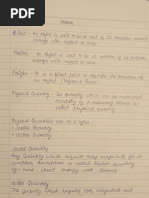 Motion
Rest - An object is said to be at rest if its position doesn't
change with respect to time.
Motion - An object is said to be at motion if its position
change with respect to time.
Origin - It is a fixed point to describe the position of
the object (Reference Point).
Physical Quantity - The quantity which can be measured
by a measuring device is
called physical quantity.
Physical Quantities are of 2 types
- Scalar Quantity
- Vector Quantity
Scalar Quantity
Any Quantity which requires only magnitude for its
complete description is called Scalar Quantity.
eg - time, speed, energy with distance.
Vector Quantity
The quantity which requires both magnitude and